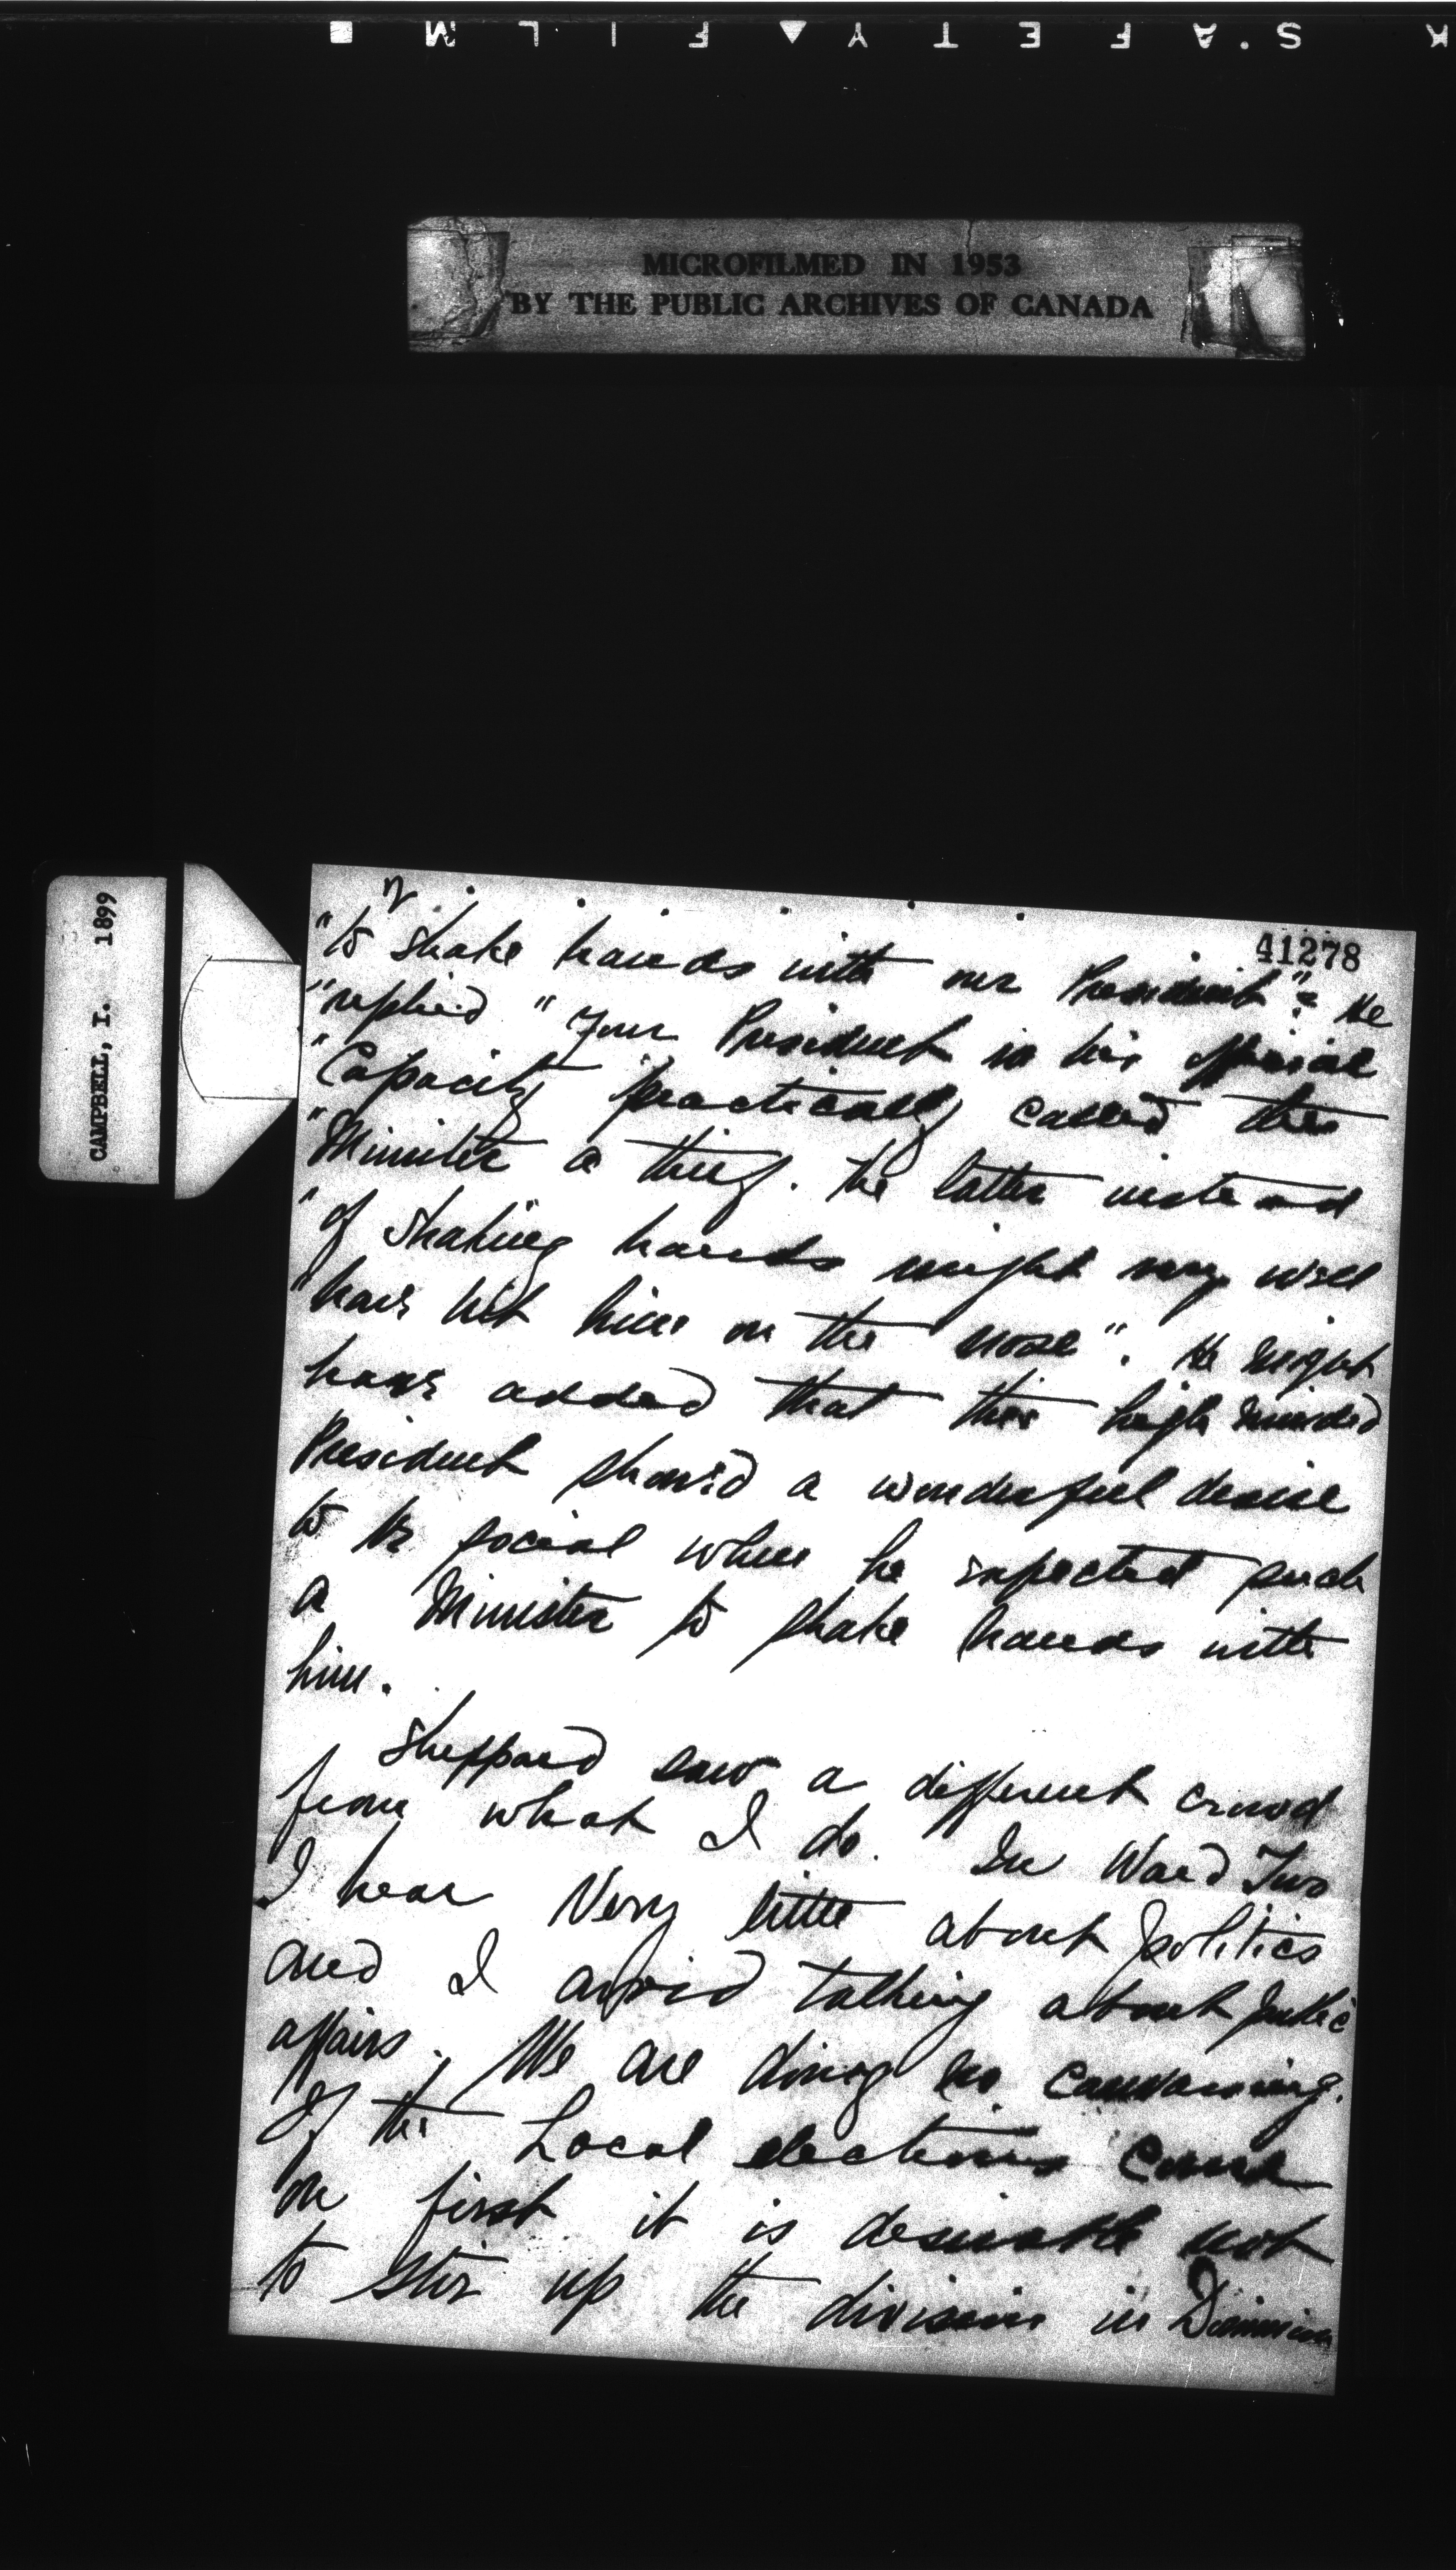 K S'AFETY FILM
MICROFILMED IN 1953
BY THE PUBLIC ARCHIVES OF CANADA
CAMPBELL, I. 1899
2
41278
"to shake hands with our President"? He
"replied "Your President in his official
"Capacity practically called this
"Minister a thief. The latter instead
"of shaking hands might very well
"have hit him on the nose". He might
have added that this high minded
President showed a wonderful desire
to be social when he expected such
a Minister to shake hands with
him.
Sheppard saw a different crowd
from what I do. In Ward Two
I hear Very little about politics
and I avoid talking about public
affairs. We are doing no canvassing.
If the Local elections come
on first it is desirable not
to stir up the division in Dominion